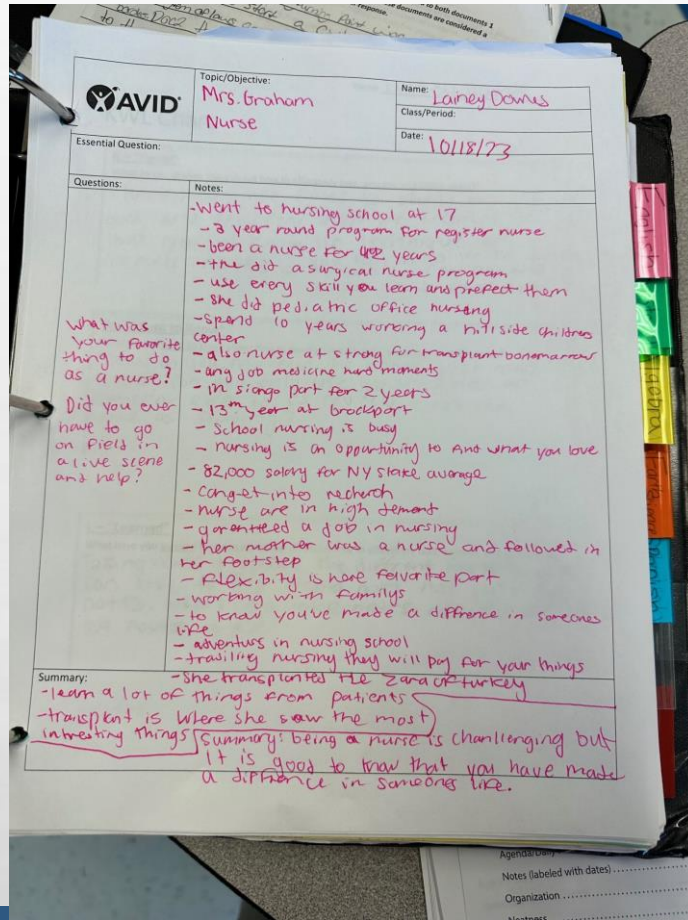 to both documents 1
response.
documents are considered a
start
a
to
AVID
Topic/Objective:
Mrs. Graham
Nurse
Name: Lainey Downs
Class/Period:
Date: 10/18/23
Essential Question:
Questions:
What was
your favorite
thing to do
as a nurse?
Did you ever
have to go
on field in
a live scene
and help?
Notes:
-Went to nursing school at 17
-3 year round program for register nurse
-been a nurse for years
-the did a surgical nurse program
- use every skill you learn and prefect them
- she did pediatric office nursing
-spend 10 years working a hillside childres
center
- also nurse at strong for transplant bonemarrow
- any job medicine hard moments
- in siango part for 2 years
- 13th year at brockport
- School nursing is busy
- nursing is an oppurtunity to find what you love
- 82,000 salary for NY state average
- can get into
- nurse are in high demend
- garenteed a job in nursing
- her mother was a nurse and followed in
her footstep
- flexibity is here faivorite part
- working with familys
- to know you've made a diffrence in someones
life
- adventurs in nursing school
- nursing they will pay for your things
- She transplanted the of turkey
Summary:
-learn a lot of things from patients
-transplant is where she saw the most
intresting things
Summary: being a nurse is chanllenging but
it is good to know that you have made
a diffrence in someones life.
English
Algebra
Agenda/Daily
Notes (labeled with dates)
Organization
Neatness